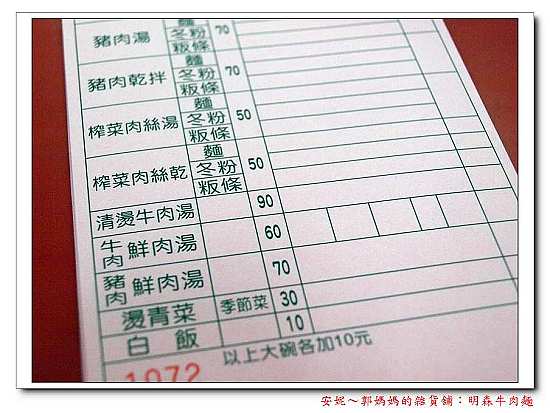 豬肉湯 麵 冬粉 粄條 70
豬肉乾拌 麵 冬粉 粄條 70
榨菜肉絲湯 麵 冬粉 粄條 50
榨菜肉絲乾 麵 冬粉 粄條 50
清燙牛肉湯 90
牛肉鮮肉湯 60
豬肉鮮肉湯 70
燙青菜 季節菜 30
白飯 10
以上大碗各加10元
1072
安妮~郭媽媽的雜貨鋪:明森牛肉麵